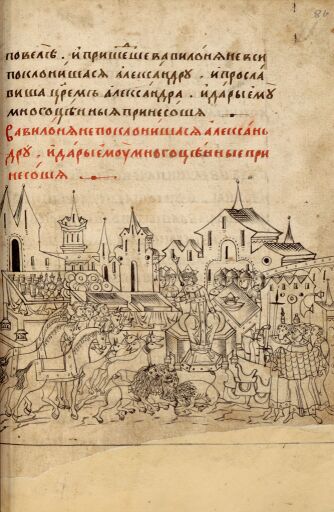 повелѣ · и пришеⷣше вавилоняне вси
поклонишася алеѯандру · и просла
виша цремъ алеѯандра · и дары ему
многоцѣнныя принесоша
вавилоняне поклонишася алеѯань
дру · и дары ему многоцѣнные при
несоша